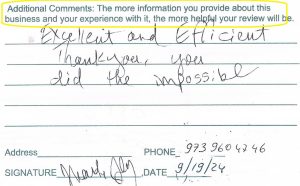 Additional Comments: The more information you provide about this
business and your experience with it, the more helpful your review will be.
Excellent and Efficient
Thankyou, you
did the impossible
Address PHONE 973 960 4746
SIGNATURE DATE 9/19/24